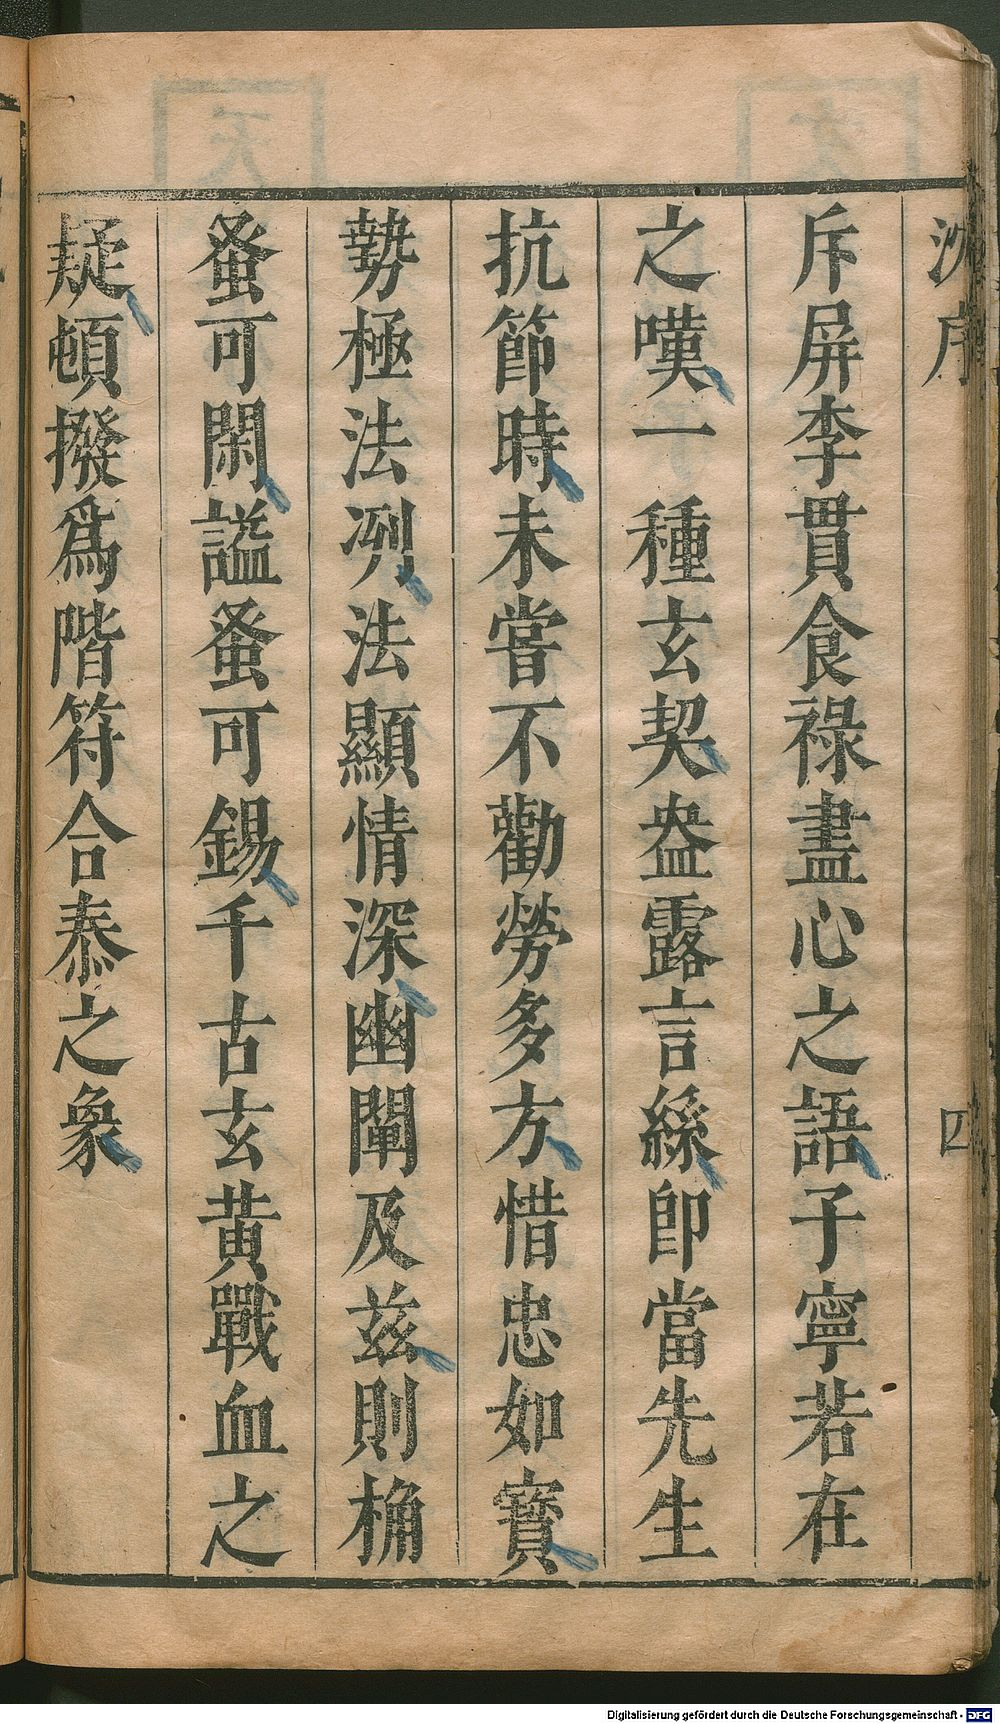 沈序 四
斥屏李貫食祿盡心之語子寧若在
之嘆一種玄契盎露言絲卽當先生
抗節時未嘗不勸勞多方惜忠如寶
勢極法冽法顯情深幽闡及茲則桷
蚤可閑謚蚤可錫千古玄黃戰血之
疑頓撥爲階符合泰之象
Digitalisierung gefördert durch die Deutsche Forschungsgemeinschaft - DFG